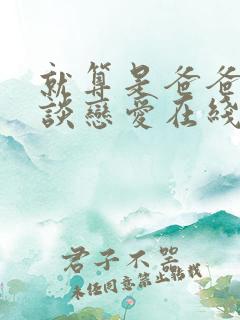 就算是爸爸
談戀愛在綫
君子不器
未經同意禁止轉載